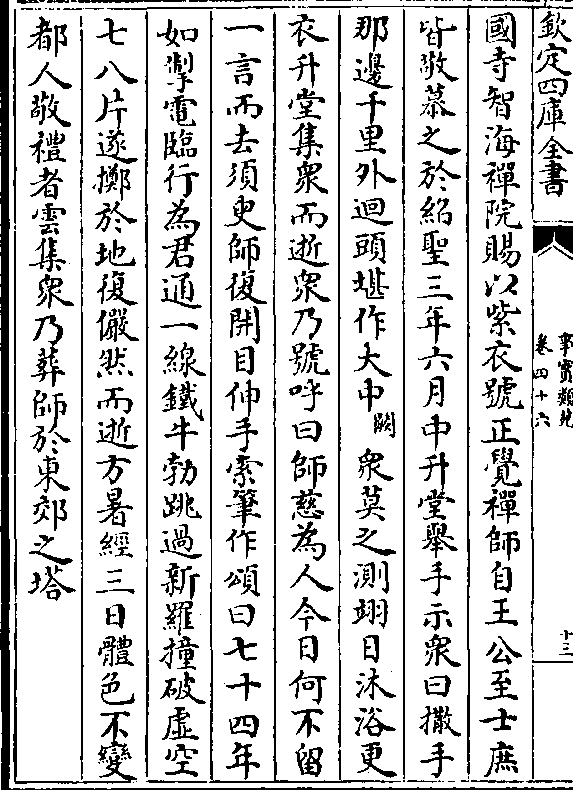 欽定四庫全書
事實類苑
卷四十六
十三
國寺智海禪院賜以紫衣號正覺禪師自王公至士庶
皆敬慕之於紹聖三年六月中升堂舉手示衆曰撒手
那邊千里外迴頭堪作大中闕衆莫之測翊日沐浴更
衣升堂集衆而逝衆乃號呼曰師慈為人今日何不留
一言而去須臾師復開目伸手索筆作頌曰七十四年
如掣電臨行為君通一線鐵牛勃跳過新羅撞破虛空
七八片遂擲於地復儼然而逝方暑經三日體色不變
都人敬禮者雲集衆乃葬師於東郊之塔